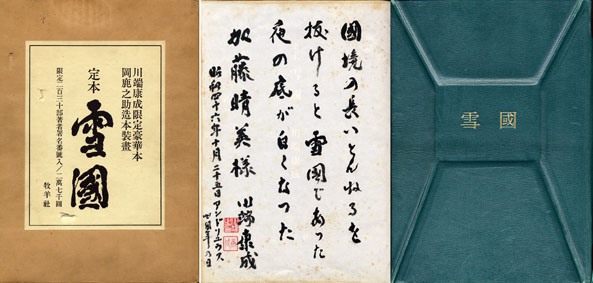 川端康成限定豪華本
岡鹿之助造本装畫
定本
雪國
限定二百三十部著者署名番號入/二萬七千圓
牧羊社
國境の長いとんねるを
抜けると雪國であつた
夜の底が白くなつた
加藤晴美様 川端康成
昭和四十六年十月二十五日アンドリュウス
雪 國